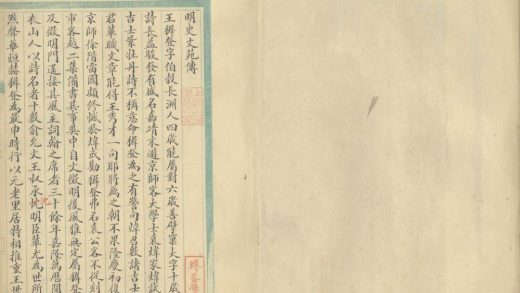 明史文苑傳
王穉登字伯穀長洲人四歲能屬對六歲善擘窠大字十歲
詩長益駿發有盛名嘉靖末遊京師客大學士袁煒家煒試
吉士紫牡丹詩不稱意命穉登為之有警句煒召數諸吉士
君輩職文章能得王秀才一句耶將薦之朝不果隆慶初復
京師徐階當國頗修憾於煒或勸穉登弗名袁公客不從刻
市客越二集備書其事吳中自文徵明後風雅無定屬穉登
及徵明門遙接其風主詞翰之席者三十餘年嘉隆萬曆間
衣山人以詩名者十數俞允文王叔承枕明臣輩尤為世所
沈
然聲華烜赫穉登為最申時行以元老里居特相推重王世